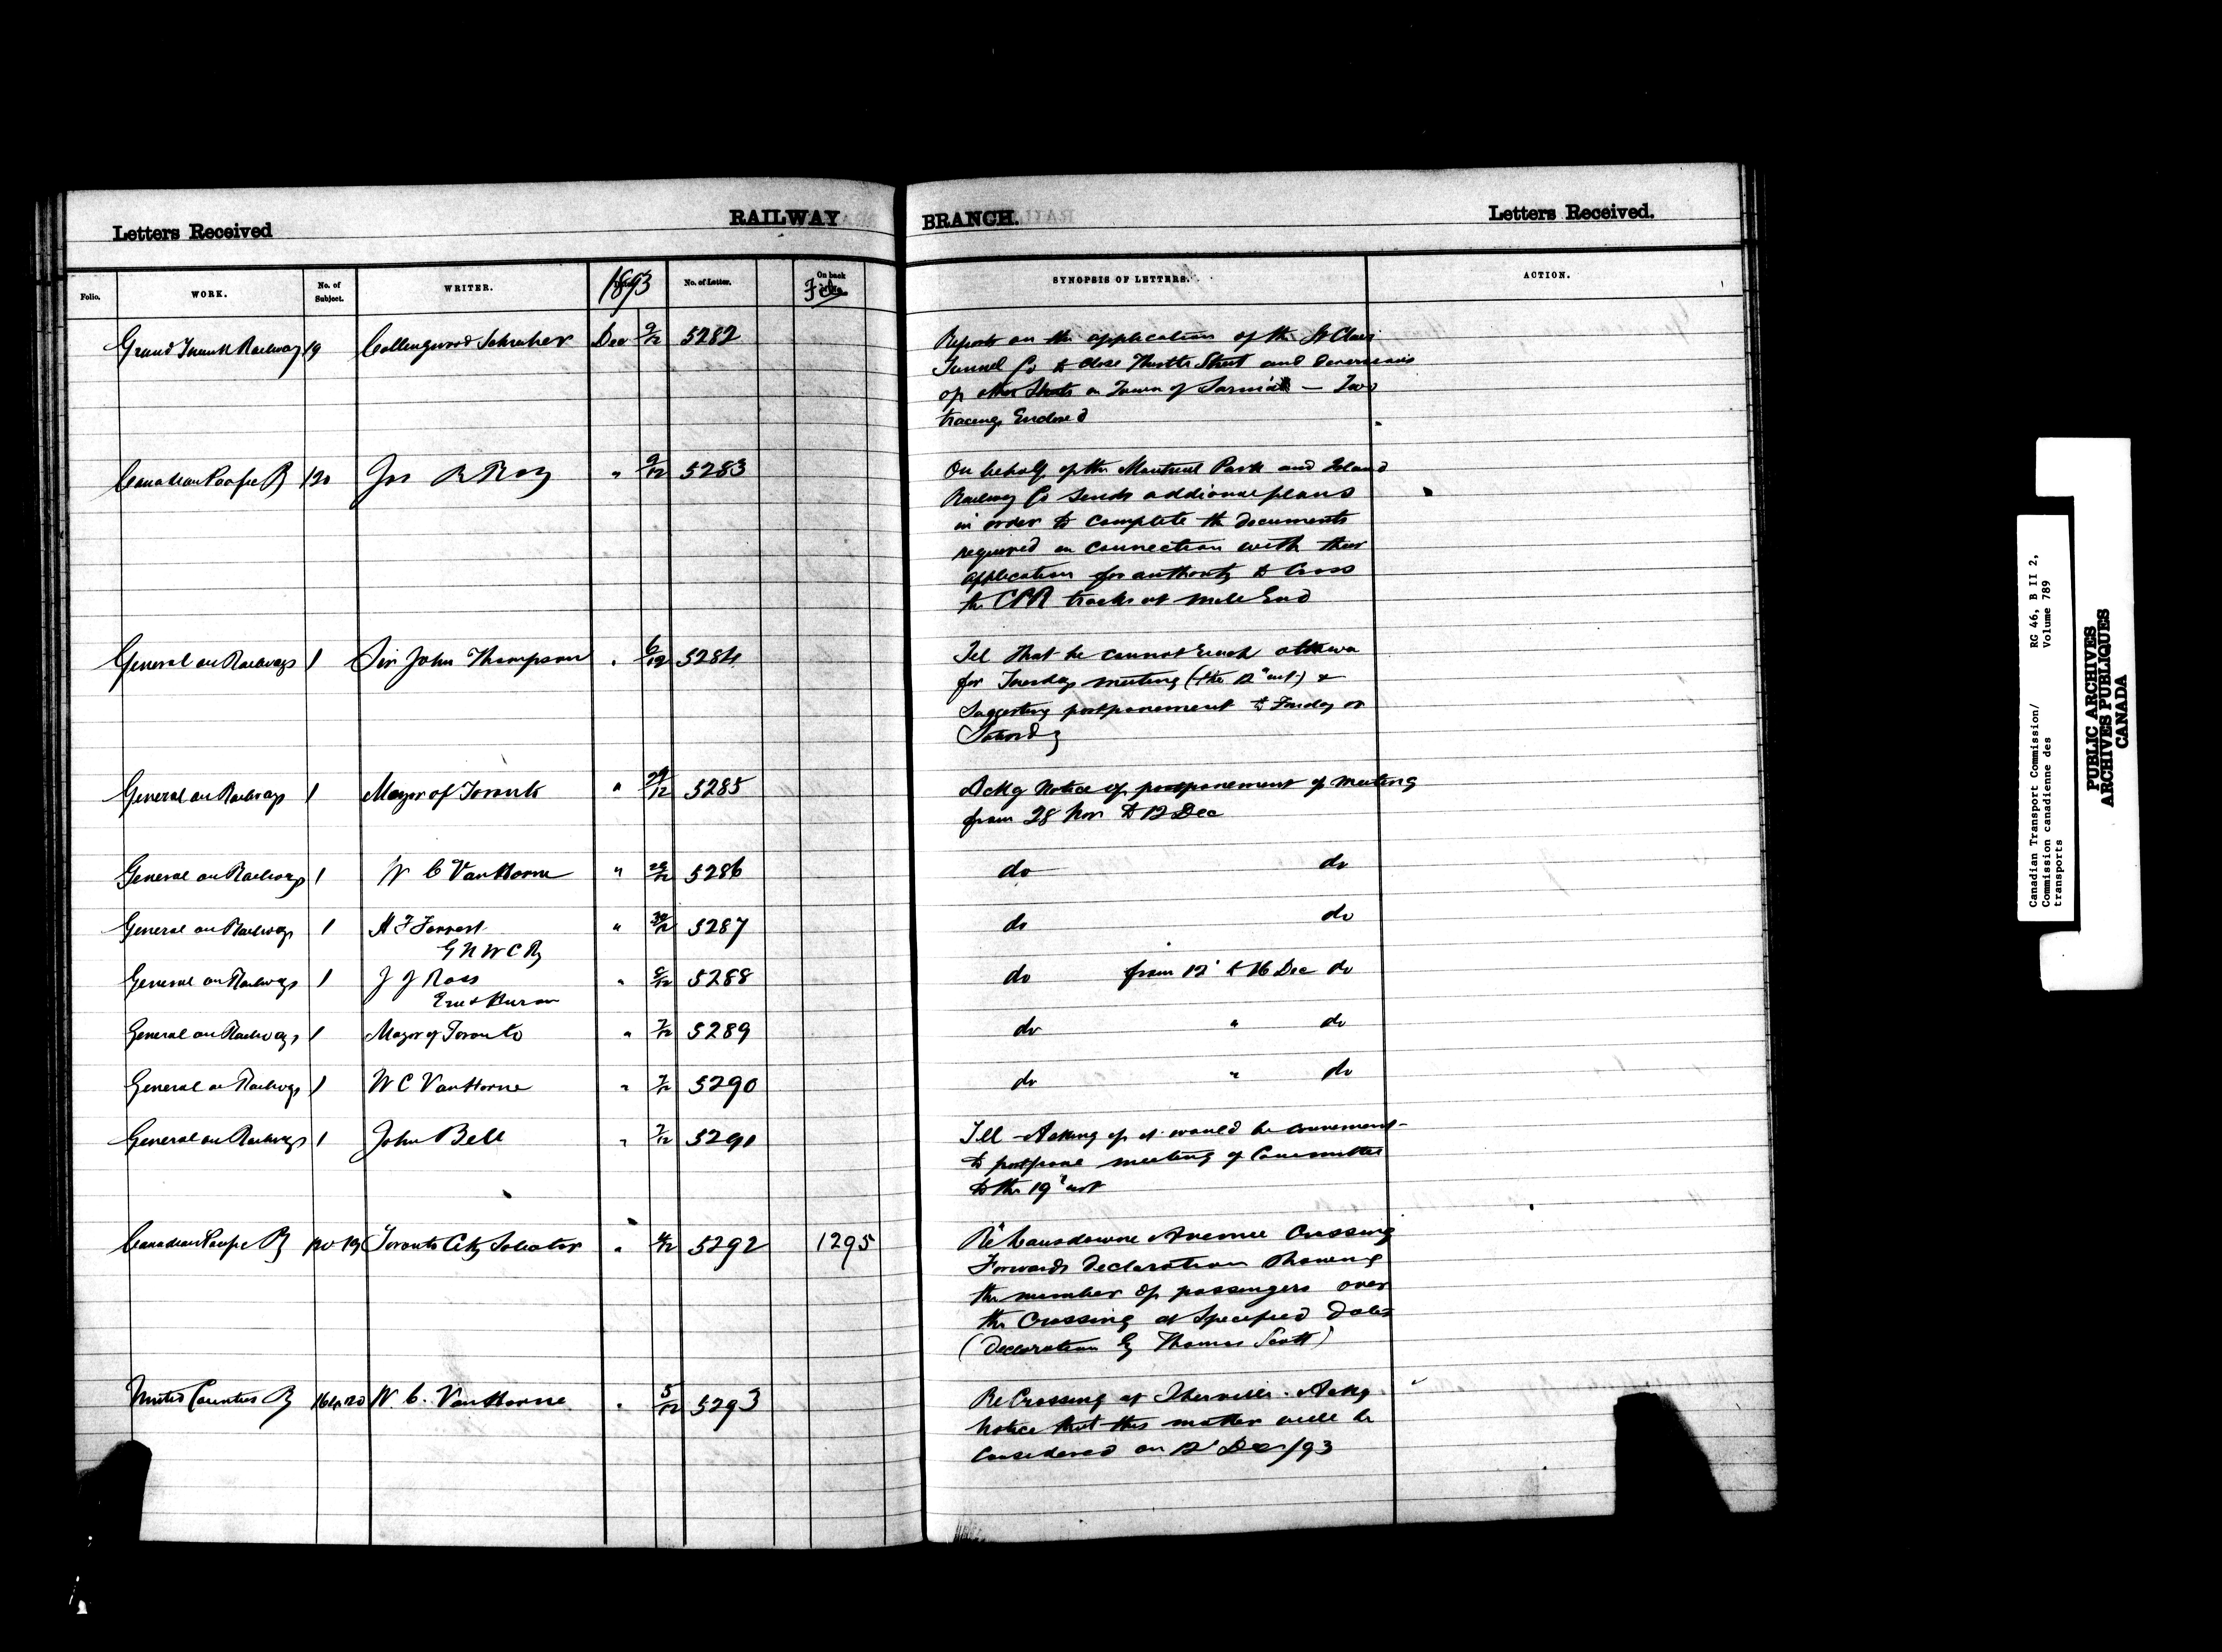 Letters Received
RAILWAY BRANCH.
Letters Received.
Folio. WORK. No. of Subject. WRITER. 1893 No. of Letter. On back File SYNOPSIS OF LETTERS. ACTION.
Grand Trunk Railway 19 Collingwood Schreiber Dec 9/12 5282
Report on the application of the St Clair
Tunnel Co to close Thistle Street and diversions
of other Streets in Town of Sarnia — Two
tracings Enclosed
Canadian Pacific Ry 120 Jos R Roy " 9/12 5283
On behalf of the Montreal Park and Island
Railway Co sends addional plans
in order to complete the documents
required in connection with their
application for authority to cross
the CPR tracks at Mile End
General on Railways 1 Sir John Thompson " 6/12 5284
Tel that he cannot reach Ottawa
for Tuesday meeting (the 12" inst) &
suggesting postponement to Friday or
Saturday
General on Railways 1 Mayor of Toronto " 29/12 5285
Ackg Notice of postponement of meeting
from 28 Nov to 12 Dec
General on Railways 1 W C Van Horne " 5286
do do
General on Railways 1 A F Forrest " 30/12 5287
G N W C Ry
do do
General on Railways 1 J J Ross " 8/12 5288
Erie & Huron
do from 12' to 16 Dec do
General on Railways 1 Mayor of Toronto " 7/12 5289
do " do
General on Railways 1 W C Van Horne " 7/12 5290
do " do
General on Railways 1 John Bell " 7/12 5291
Tel Asking if it would be convenient
to postpone meeting of Committee
to the 19" inst
Canadian Pacific Ry 120 19 Toronto City Solicitor " 5292 1295
Re Lansdowne Avenue Crossing
Forwards Declaration Showing
the number of passengers over
the Crossing at Specified Dates
(Declaration by Thomas Scott)
United Counties Ry 164 120 W C. Van Horne " 5/12 5293
Re Crossing at Iberville. Ackg
Notice that this matter will be
considered on 12' Dec/93
Canadian Transport Commission/
Commission canadienne des
transports
RG 46, B II 2,
Volume 789
PUBLIC ARCHIVES
ARCHIVES PUBLIQUES
CANADA